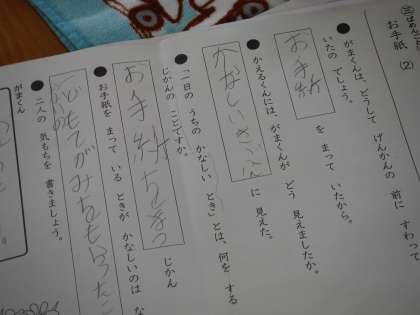 三ばめん
お手紙 (2)
●がまくんは、どうして げんかんの 前に すわって
いたのでしょう。
お手紙 を まって いたから。
●かえるくんには、がまくんが どう 見えましたか。
かなしいきぶん に 見えた。
●「一日の うちの かなしい とき」とは、何を する
じかんの ことですか。
お手紙ちまつ じかん
●お手紙を まって いる ときが かなしいのは な
●二人の 気もちを 書きましょう。
がまくん